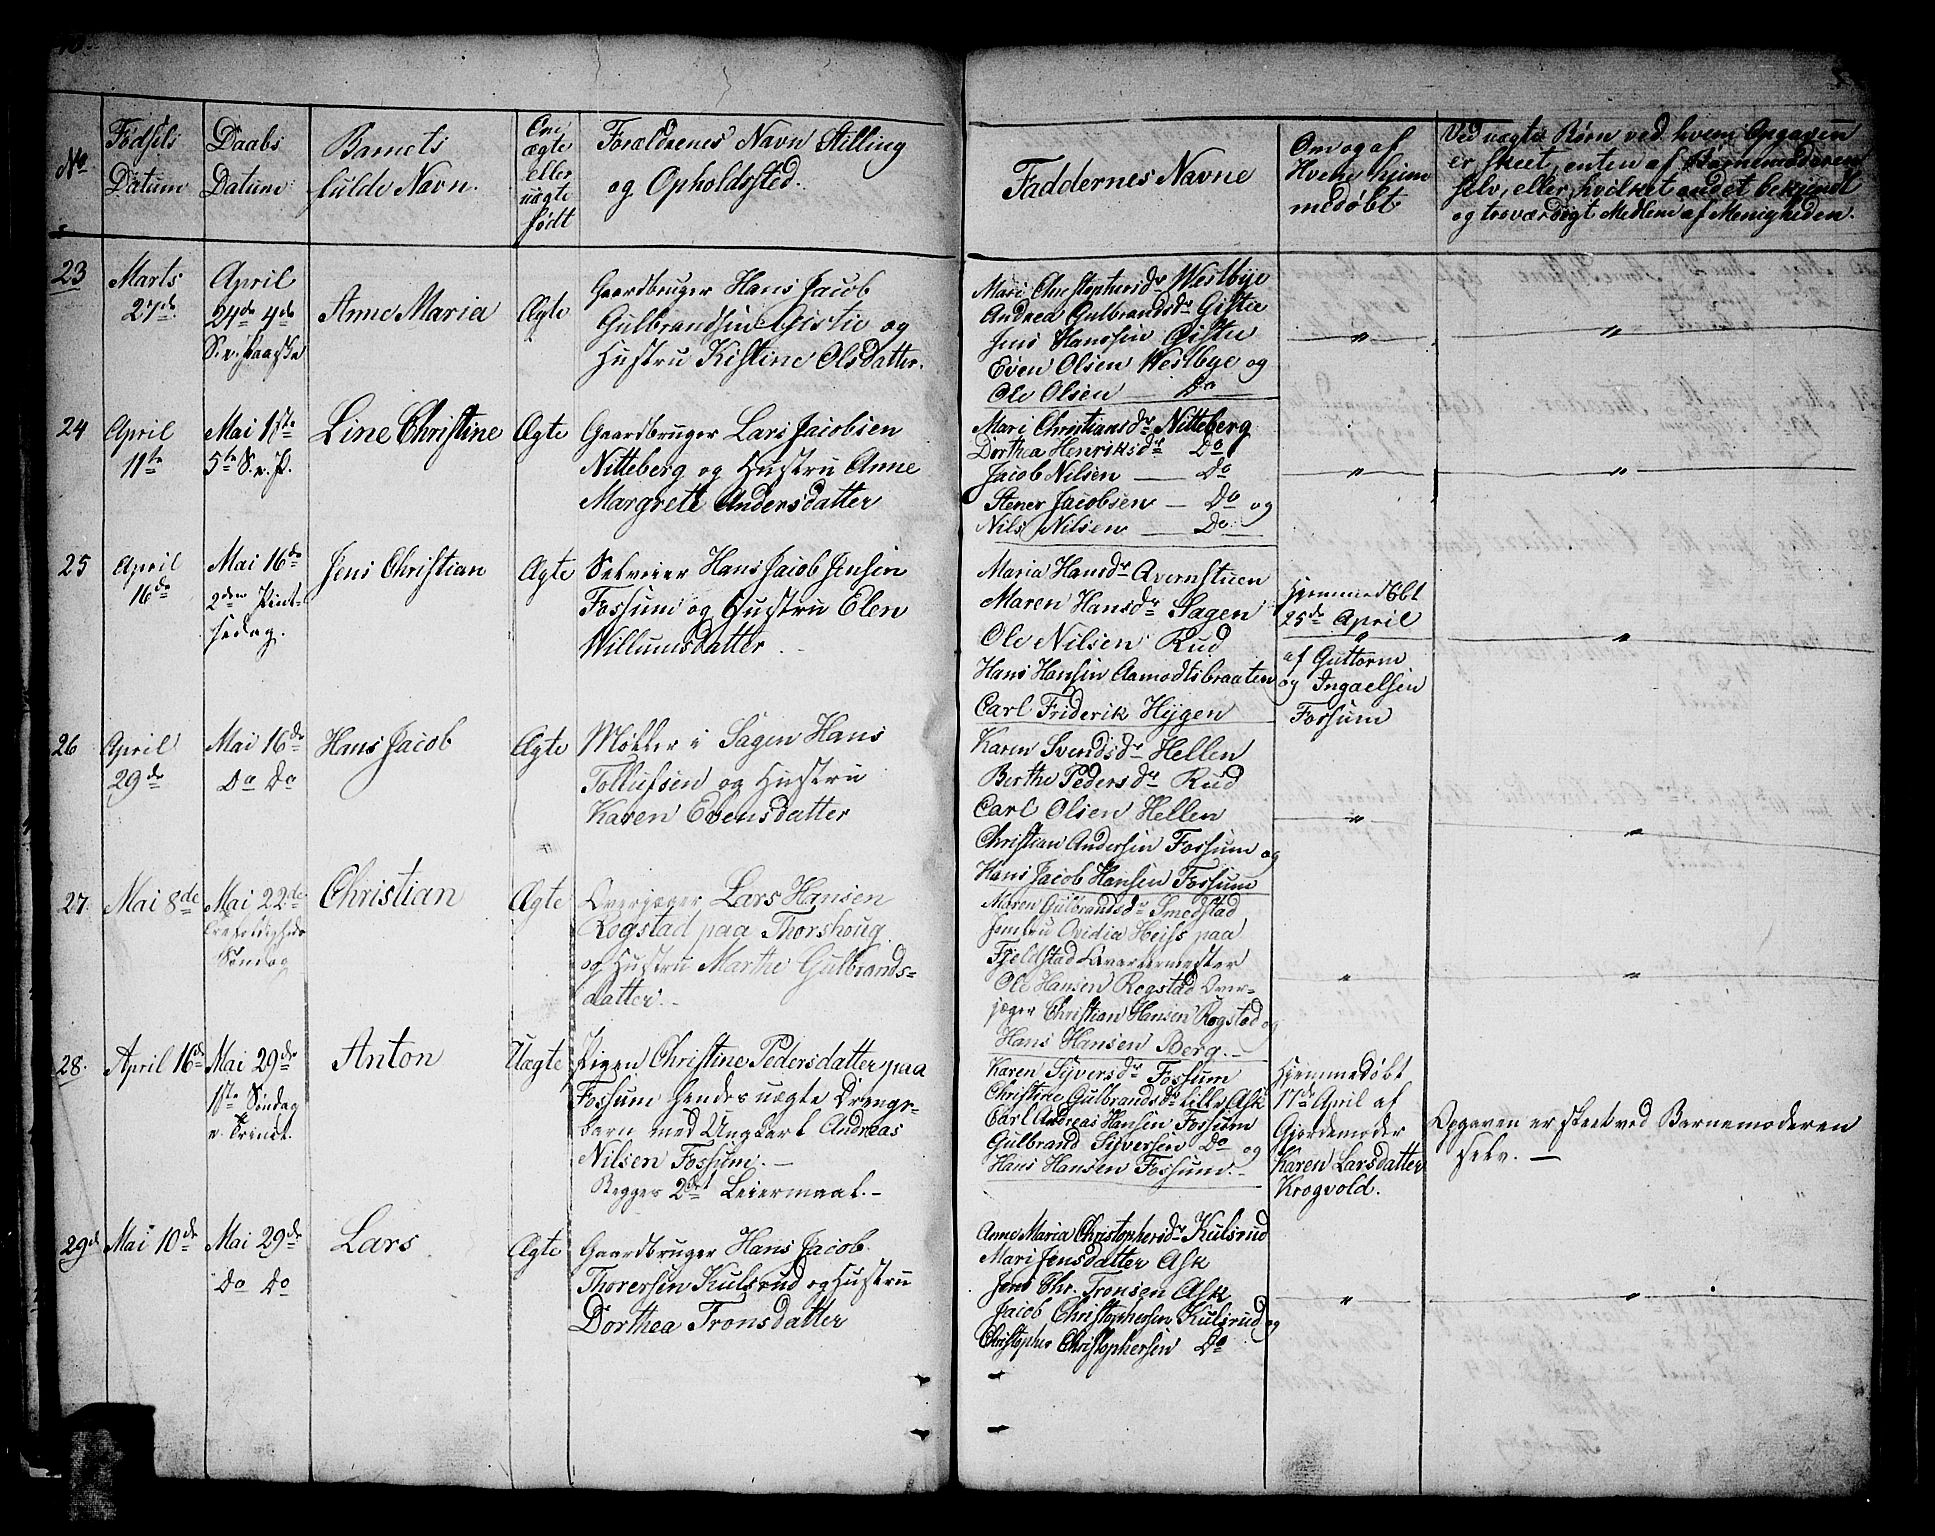 No
Fødsels
Datum
Daabs
Datum
Barnets
fulde Navn.
Om
ægte
eller
uægte
født
Forældrenes Navn Stilling
og Opholdssted.
Faddernes Navne
Om og af
Hvem hjem
medøbt
Ved uægte Børn ved hvem Opgaven
er skeet, enten af Barnemoderen
selv, eller hvilket andet bekjendt
og troværdigt Medlem af Menigheden.
23
Marts
27de
April
24de 4de
S. e. Paaske
Anne Maria
Ægte
Gaardbruger Hans Jacob
Gulbrandsen Gistie og
Hustru Kistine Olsdatter.
Mari Christophersdr Westbye
Andrea Gulbrandsdr Gistie
Jens Hanssen Gistie
Even Olsen Westbye og
Ole Olsen — Do
"
"
24
April
11te
Mai 1ste
5te S. e. P.
Line Christine
Ægte
Gaardbruger Lars Jacobsen
Nitteberg og Hustru Anne
Margrete Andersdatter
Mari Christiansdr Nitteberg
Dorthea Henriksdr Do
Jacob Nilsen — Do
Stener Jacobsen — Do og
Nils Nilsen — Do.
"
"
25
April
16de
Mai 16de
2den Pint-
sedag.
Jens Christian
Ægte
Selveier Hans Jacob Jensen
Fossum og Hustru Elen
Willumsdatter.
Maria Hansdr Avernstuen
Maren Hansdr Sagen
Ole Nilsen Rud
Hans Hansen Aamodtsbraaten
Carl Friderik Hygen
Hjemmedøbt
25de April
af Guttorm
og Ingaelsen
Fossum
"
26
April
29de
Mai 16de
Do Do
Hans Jacob
Ægte
Møller i Sagen Hans
Tollefsen og Hustru
Karen Evensdatter
Karen Svendsdr Hellen
Berthe Pedersdr Rud
Carl Olsen Hellen
Christian Andersen Fossum og
Hans Jacob Hansen Fossum
"
"
27.
Mai 8de
Mai 22de
Trefoldigheds
Søndag
Christian
Ægte
Overjæger Lars Hansen
Rogstad paa Thorshoug
og Hustru Marthe Gulbrands-
datter.-
Maren Gulbrandsdr Smedstad
Jomfru Ovidia Heiss paa
Fjeldstad Qvartermester
Ole Hansen Rogstad Over-
jæger Christian Hansen Rogstad og
Hans Hansen Berg.-
"
"
28.
April 16de
Mai 29de
1ste Søndag
e. Trinit.
Anton
Uægte
Pigen Christine Pedersdatter paa
Fossum hendes uægte Drenge-
barn med Ungkarl Andreas
Nilsen Fossum.-
Begges 2det Leiermaal.-
Karen Syversdr Fossum
Christine Gulbrandsdr Lille Ask
Carl Andreas Hansen Fossum
Gulbrand Syversen Do og
Hans Hansen Fossum.-
Hjemmedøbt
17de April af
Gjordemoder
Karen Larsdatter
Krogvold.
Opgaven er skeet ved Barnemoderen
selv. —
29de
Mai 10de
Mai 29de
Do Do
Lars
Ægte
Gaardbruger Hans Jacob
Thorersen Kulsrud og Hustru
Dorthea Tronsdatter
Anne Maria Christophersdr Kulsrud
Mari Jensdatter Ask
Jens Chr. Tronsen Ask
Jacob Christophersen Kulsrud og
Christopher Christophersen Do
"
"